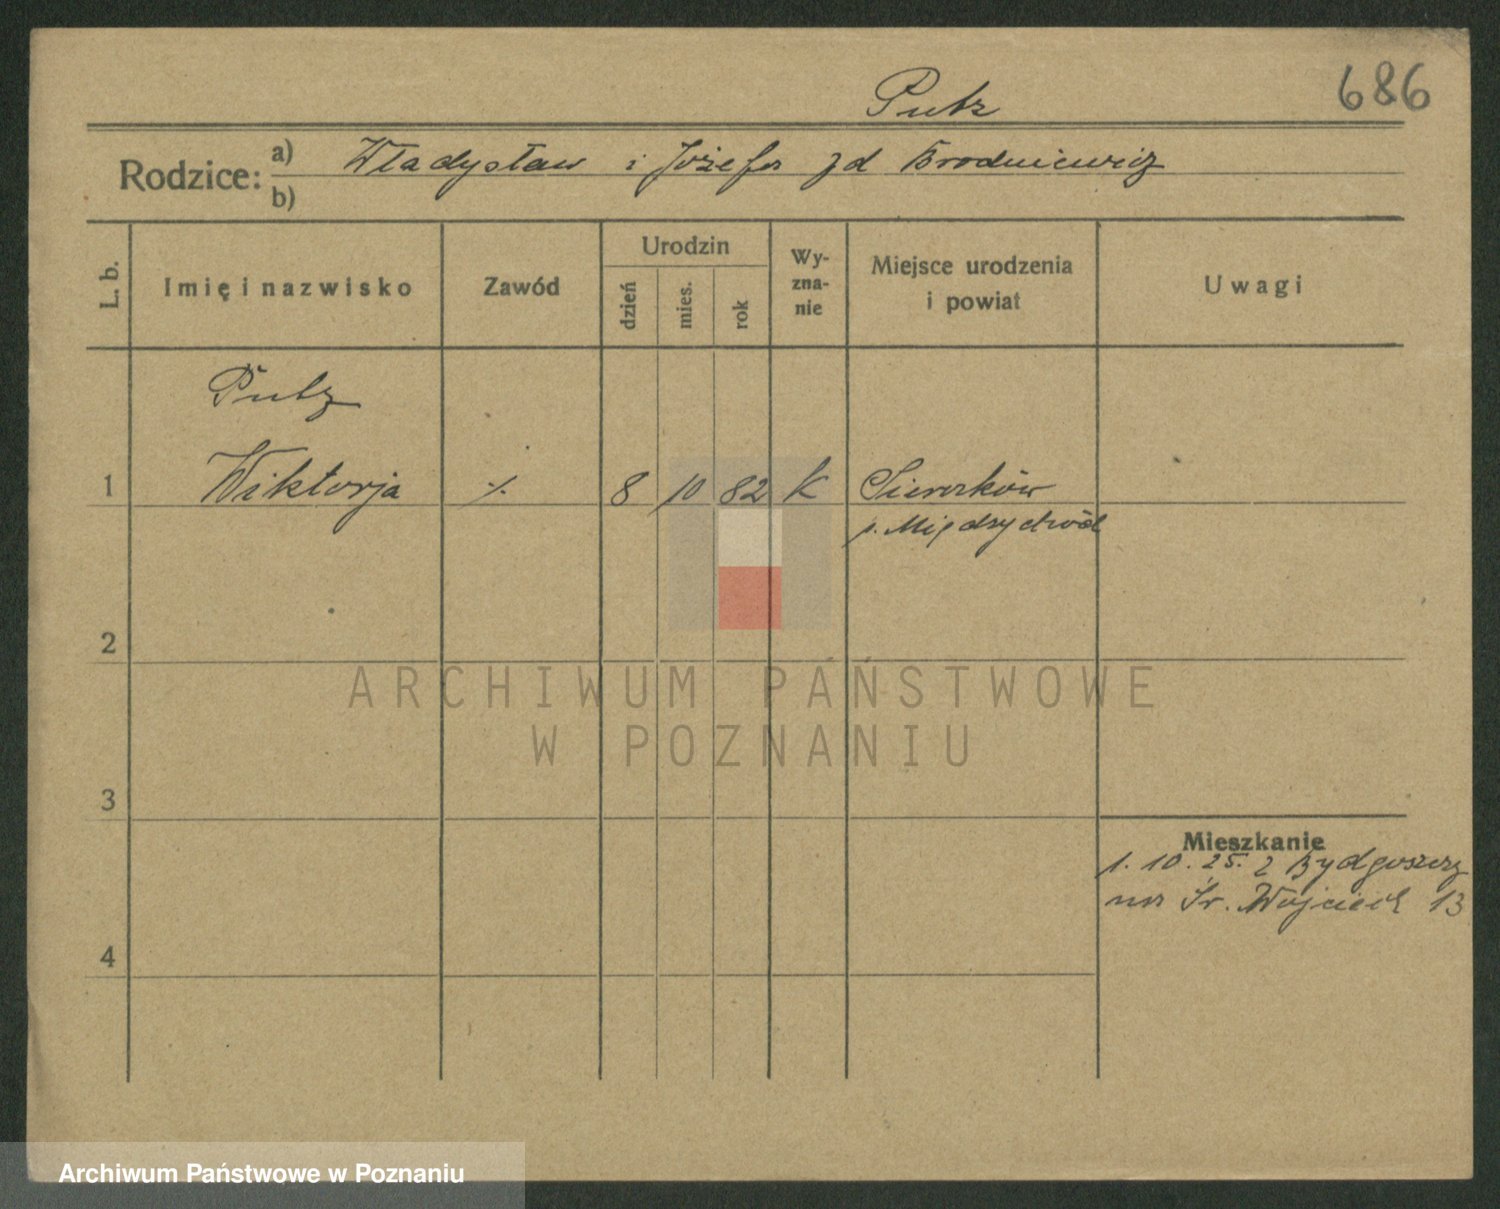 Putz
686
Rodzice: a) Władysław i Józefa zd Brodniewicz
b)
L. b. Imię i nazwisko Zawód Urodzin Wy-zna-nie Miejsce urodzenia i powiat Uwagi
dzień mies. rok
Putz
1 Wiktorja ./. 8 10 82 K Sieraków
p. Międzychód
2
ARCHIWUM PAŃSTWOWE
W POZNANIU
3
Mieszkanie
1. 10. 25. z Bydgoszczy
na Św. Wojciech 13
4
Archiwum Państwowe w Poznaniu